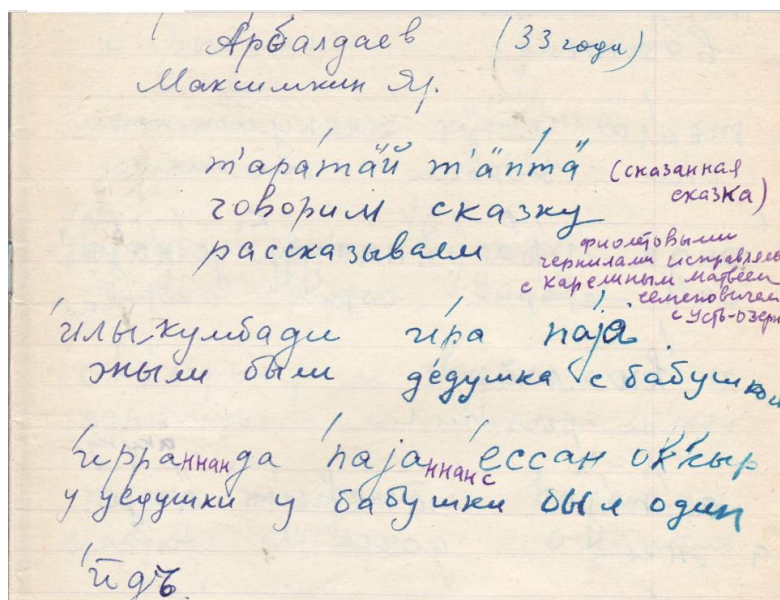 Арбалдаев (33 года)
Максимкин Яр.
т'арат̄ӓй т'ӓптӓ (сказанная сказка)
говорим сказку
рассказываем
фиолетовыми
чернилами исправлялось
с Карелиным Матвеем
Семеновичем
с Усть-Озерн
илыкумбади ира паjа.
жили были дедушка с бабушкой
иррана ннанда паjаннанс ессан оккыр
у дедушки у бабушки был один
йдъ